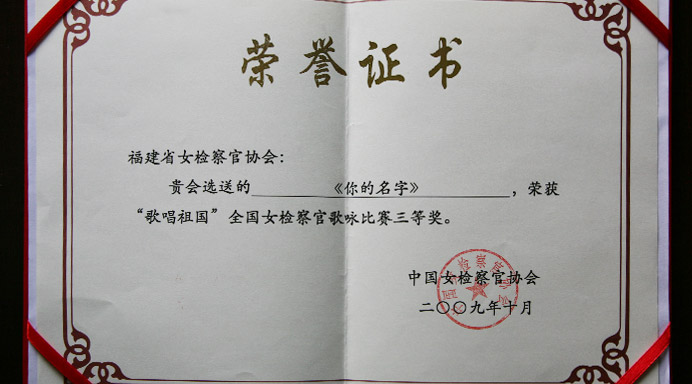 荣誉证书
福建省女检察官协会：
贵会选送的《你的名字》，荣获
“歌唱祖国”全国女检察官歌咏比赛三等奖。
中国女检察官协会
二〇〇九年十月